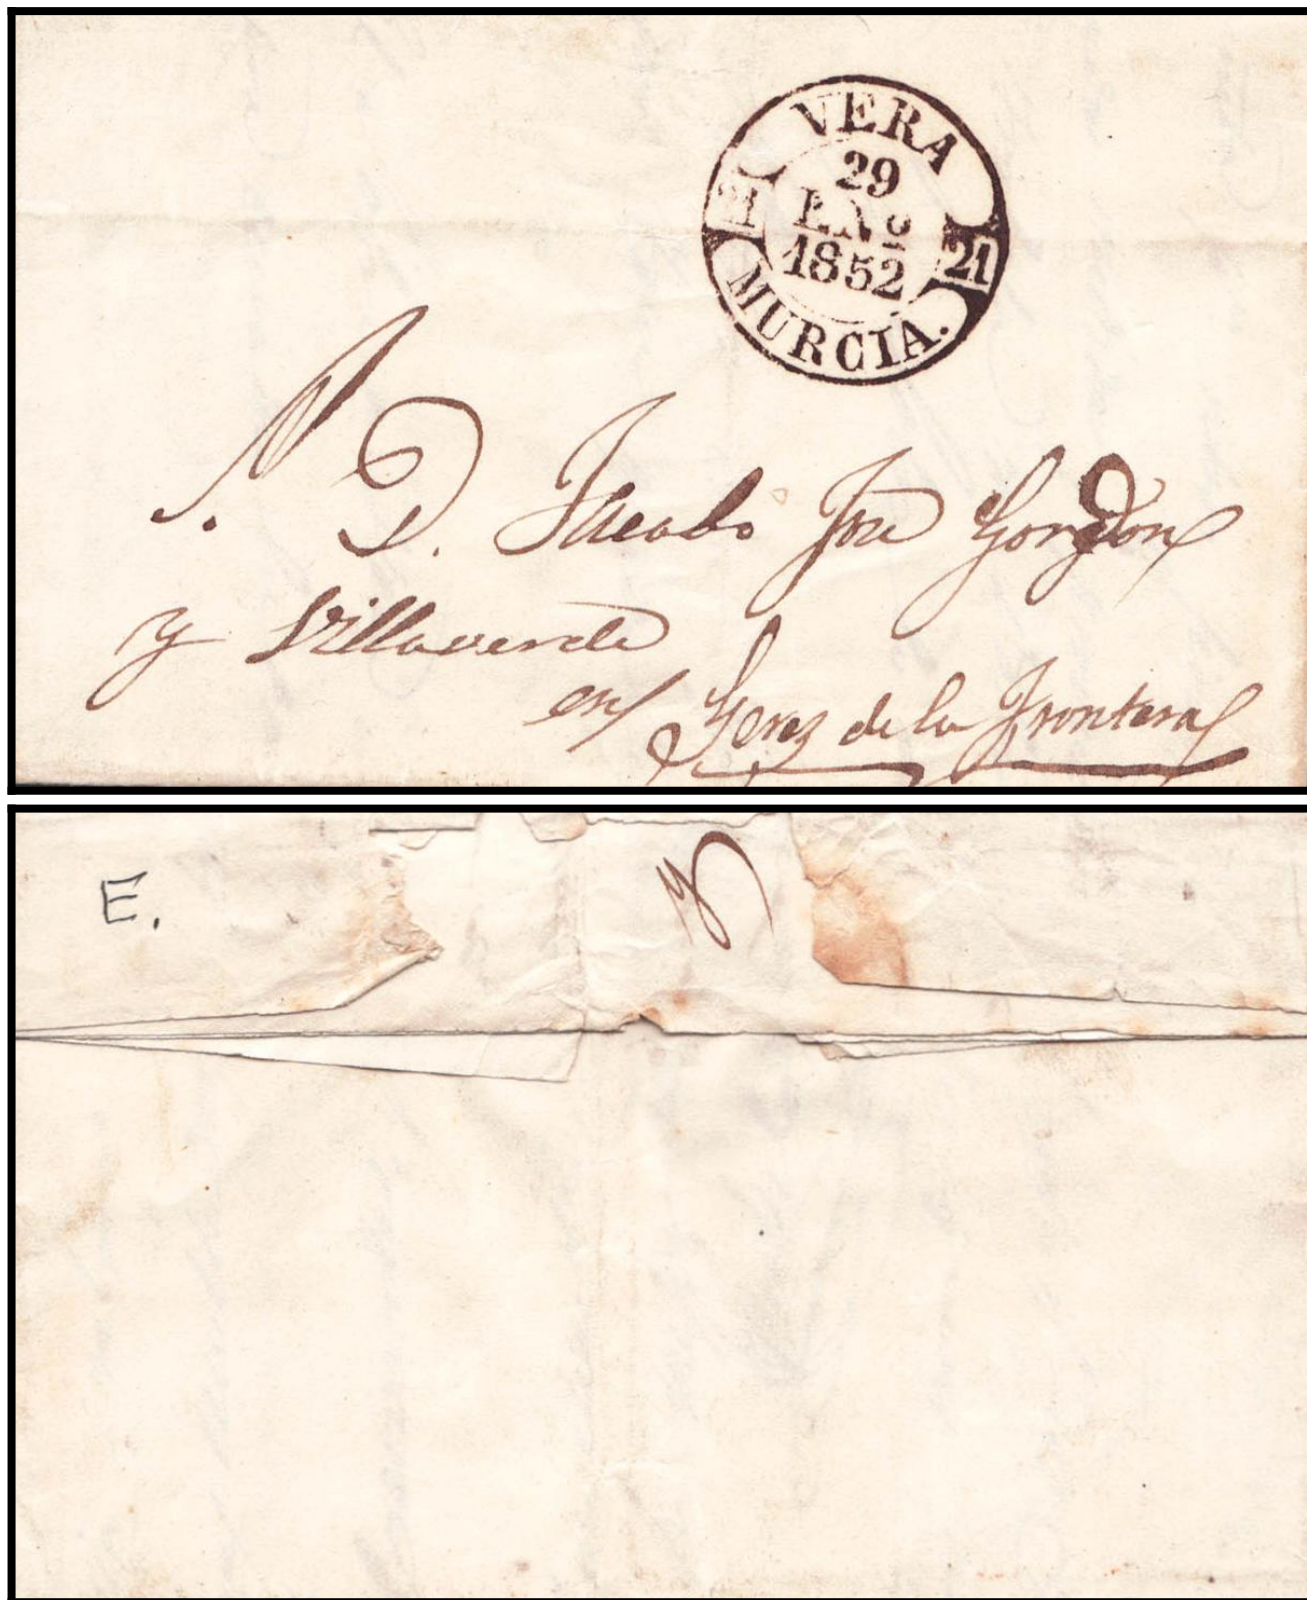 VERA
29
ENº
1852
21 21
MURCIA.
A. D. Jacobo José Gordon
y Villaverde
en Xerez de la Frontera
E.